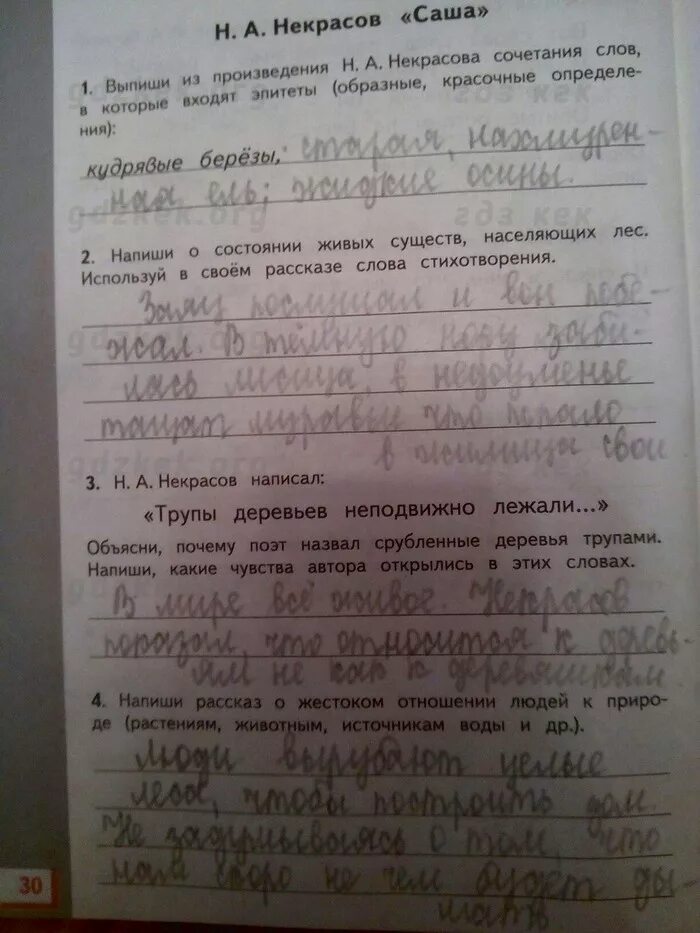 Н. А. Некрасов «Саша»
1. Выпиши из произведения Н. А. Некрасова сочетания слов,
в которые входят эпитеты (образные, красочные определе-
ния):
кудрявые берёзы, старая, нахмурен-
ная ель; жидкие осины.
gdzkek.org гдз кек
2. Напиши о состоянии живых существ, населяющих лес.
Используй в своём рассказе слова стихотворения.
Заяц послушал и вон побе-
жал. В тёмную нору заби-
лась лисица, в недоуменье
тащат муравьи что попало
в жилища свои
3. Н. А. Некрасов написал:
«Трупы деревьев неподвижно лежали...»
Объясни, почему поэт назвал срубленные деревья трупами.
Напиши, какие чувства автора открылись в этих словах.
В мире всё живое. Некрасов
показал, что относится к деревь-
ям не как к деревяшкам
4. Напиши рассказ о жестоком отношении людей к приро-
де (растениям, животным, источникам воды и др.).
Люди вырубают целые
леса, чтобы построить дом.
Не задумываясь о том, что
нам скоро не чем будет ды-
шать
30